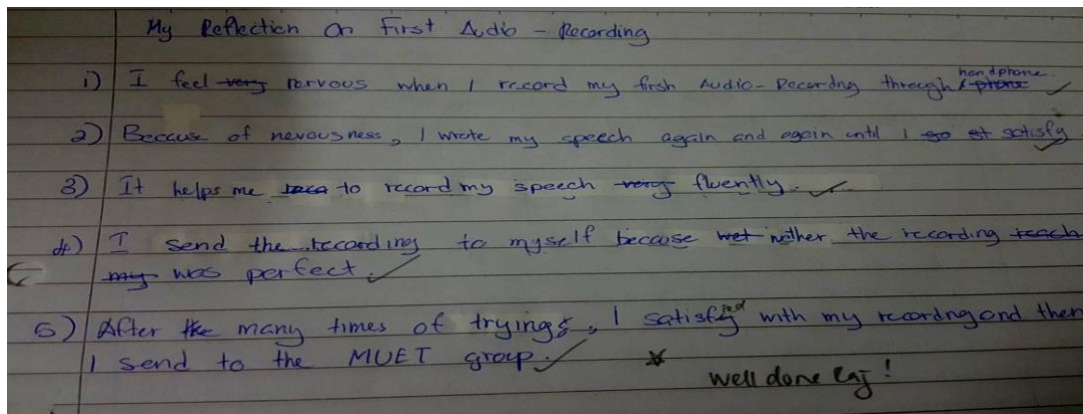 My Reflection On First Audio - Recording
handphone.
1) I feel very narvous when I record my firsh Audio-Recordng through phone
2) Becaus of nevousness, I wrote my speech again and again until I so st satisfy
3) It helps me to record my speech very fluently.
4) I send the recording to myself because wet wether the recording reach
my was perfect.
5) After the many times of tryings, I satisfyied with my recordng and then
I send to the MUET group.
well done Raj!